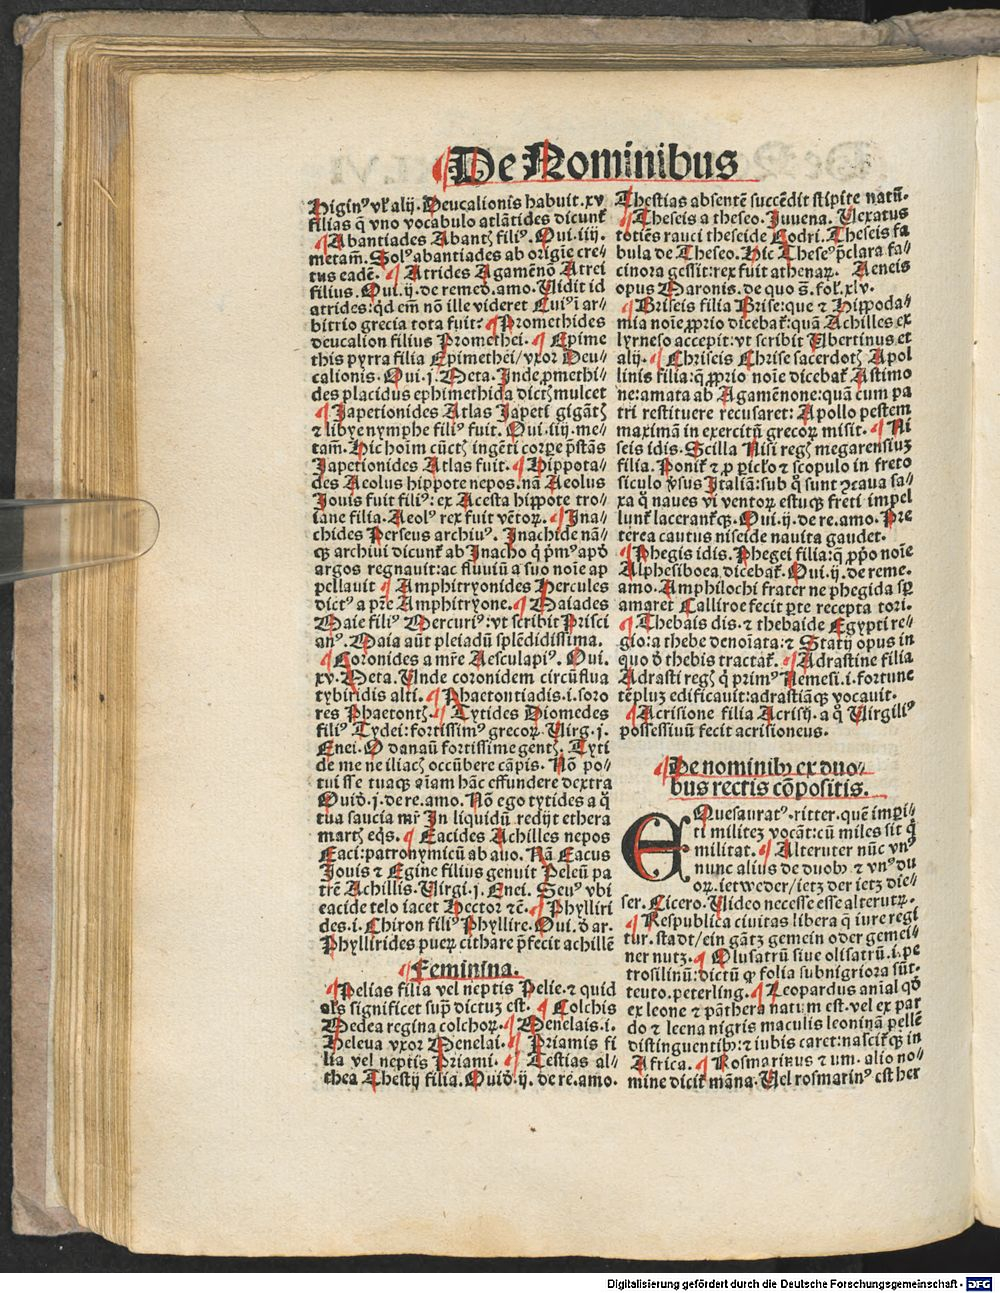 ¶ De Nominibus
Higinꝰ vt̄ alij. Deucalionis habuit.xv
filias q̄ vno vocabulo atlātides dicunt̄
¶ Abantiades Abantꝭ filiꝰ. Oui.iiij.
metam̄. Solꝰ abantiades ab origīe cre-
tus eadē. ¶ Atrides Agamēnō Atrei
filius. Oui.ij. de remed. amo. Uidit id
atrides: qd em̄ nō ille videret Cuiꝰ ī ar-
bitrio grecia tota fuit: ¶ Promethides
deucalion filius Promethei. ¶ Epime
this pyrra filia Epimethei/ vxor Deu-
calionis. Oui.j. Meta. Inde ꝓmethi-
des placidus ephimethida dictꝭ mulcet
¶ Japetionides Atlas Japeti gigātꝭ
⁊ libye nymphe filiꝰ fuit. Oui.iiij. me-
tam̄. Hic hoīm cūctꝭ ingēti corꝑe p̄stās
Japetionides Atlas fuit. ¶ Hippota-
des Aeolus hippote nepos. nā Aeolus
Jouis fuit filiꝰ: ex Acesta hippote tro-
iane filia. Aeolꝰ rex fuit vētoꝝ. ¶ Ina-
chides Perseus archiuꝰ. Inachide nā-
qꝫ archiui dicunt̄ ab Inacho q̇ p̄mꝰ apd
argos regnauit: ac fluuiū a suo noīe ap
pellauit ¶ Amphitryonides Hercules
dictꝰ a pr̄e Amphitryone. ¶ Maiades
Maie filiꝰ Mercuriꝰ: vt scribit Prisci
anꝰ. Maia aūt pleiadū splēdidissima.
¶ Coronides a mr̄e Aesculapiꝰ. Oui.
xv. Meta. Unde coronidem circūflua
tybiridis alti. ¶ Phaetontiadis.i. soro
res Phaetontꝭ. ¶ Tytides Diomedes
filiꝰ Tydei: fortissimꝰ grecoꝝ. Uirg.j.
Enei. O danaū fortissime gentꝭ. Tyti
de me ne iliacꝭ occūbere cāpis. Nō po-
tuisse tuaqꝫ aīam hāc effundere dextra
Ouid.j. de re. amo. Nō ego tytides a q̄
tua saucia mr̄ In liquidū redijt ethera
martꝭ eqs. ¶ Eacides Achilles nepos
Eaci: patronymicū ab auo. Nā Eacus
Jouis ⁊ Egine filius genuit Peleū pa
trē Achillis. Uirgi.j. Enei. Seuꝰ vbi
eacide telo iacet Hector ⁊c̄. ¶ Phylliri
des.i. Chiron filiꝰ Phyllire. Oui. d̄ ar.
Phyllirides pueꝝ cithare p̄fecit achillē
¶ Feminina.
¶ Pelias filia vel neptis Pelie. ⁊ quid
als significet sup̄ dictuꝫ est. ¶ Colchis
Medea regina colchoꝝ. ¶ Menelais.i.
Heleua vxor Menelai. ¶ Priamis fi
lia vel neptis Priami. ¶ Testias al-
thea Thestij filia. Ouid.ij. de re. amo.
Thestias absentē succēdit stipite natū.
¶ Theseis a theseo. Juuena. Uexatus
totiēs rauci theseide Codri. Theseis fa
bula de Theseo. Hic Theseꝰ p̄clara fa-
cinora gessit: rex fuit athenaꝝ. Aeneis
opus Maronis. de quo s̄. fol. xlv.
¶ Briseis filia Brise: que ⁊ Hippoda-
mia noīe ꝓprio dicebat̄: quā Achilles ex
lyrneso accepit: vt scribit Ubertinus et
alij. ¶ Chriseis Chrise sacerdotꝭ Apol
linis filia: q̄ ꝓprio noīe dicebat̄ Astimo
ne: amata ab Agamēnone: quā cum pa
tri restituere recusaret: Apollo pestem
maximā in exercitū grecoꝝ misit. ¶ Ni
seis idis. Scilla Nisi regꝭ megarensiuꝫ
filia. Ponit̄ ⁊ ꝓ piclo ⁊ scopulo in freto
siculo ꝟsus Italiā: sub q̄ sunt ꝯcaua sa-
xa q̄ naues vi ventoꝝ estuqꝫ freti impel
lunt̄ lacerant̄qꝫ. Oui.ij. de re. amo. Pre
terea cautus niseide nauita gaudet.
¶ Phegis idis. Phegei filia: q̄ ꝓp̄o noīe
Alphesiboea dicebat̄. Oui.ij. de reme.
amo. Amphilochi frater ne phegida sꝑ
amaret Calliroe fecit ꝑte recepta tori.
¶ Thebais dis. ⁊ thebaide Egypti re-
gio: a thebe denoīata: ⁊ Statij opus in
quo d̄ thebis tractat̄. ¶ Adrastine filia
Adrasti regꝭ q̄ primꝰ Nemesi.i. fortune
tēpluꝫ edificauit: adrastiāqꝫ vocauit.
¶ Acrisione filia Acrisij. a q̄ Uirgiliꝰ
possessiuū fecit acrisioneus.
¶ De nominibꝰ ex duo-
bus rectis cōpositis.
EQuesauratꝰ. ritter. quē imperi-
ti militeꝫ vocāt: cū miles sit q̇
militat. ¶ Alteruter nūc vnꝰ
nunc alius de duobꝰ ⁊ vnꝰ du
oꝝ. ietweder/ ietz der ietz die-
ser. Cicero. Uideo necesse esse alterutꝝ.
¶ Respublica ciuitas libera q̄ iure regi
tur. stadt/ ein gātz gemein oder gemei-
ner nutz. ¶ Olusatrū siue olisatrū.i. pe
trosilinū: dictū ꝙ folia subnigriora sūt.
teuto. peterling. ¶ Leopardus anīal qd̄
ex leone ⁊ pāthera natum est. vel ex par
do ⁊ leena nigris maculis leoninā pellē
distinguentibꝰ: ⁊ iubis caret: nascit̄qꝫ in
Africa. ¶ Rosmarinus ⁊ um. alio no-
mine dicit̄ māna. Uel rosmarinꝰ est her
Digitalisierung gefördert durch die Deutsche Forschungsgemeinschaft - DFG